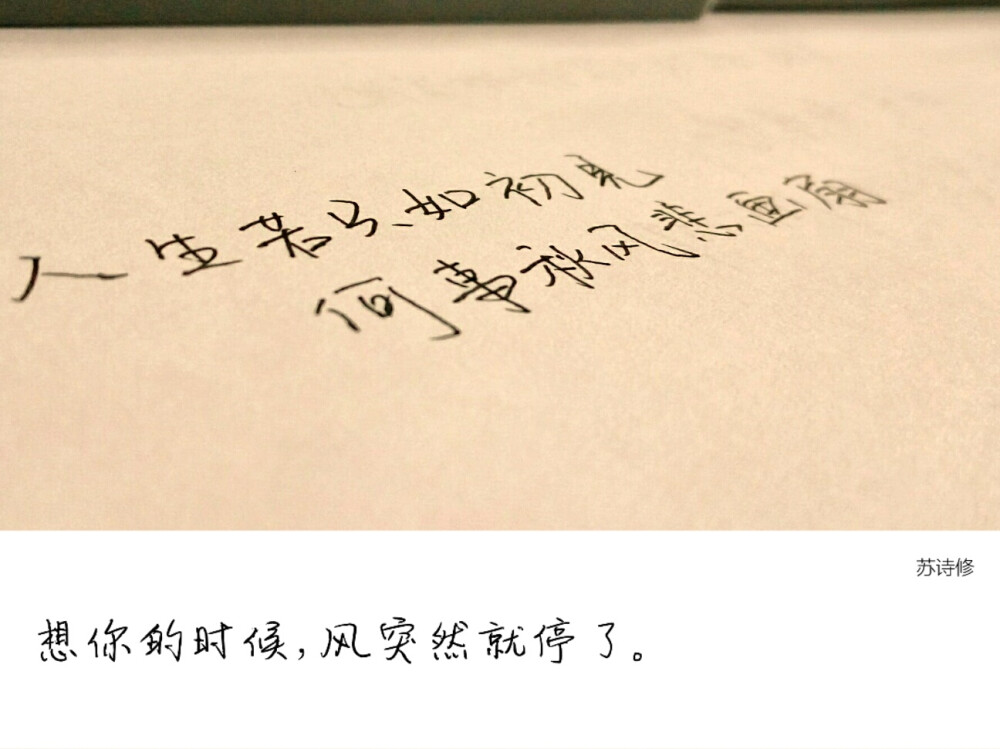 人生若只如初见
何事秋风悲画扇
苏诗修
想你的时候,风突然就停了。